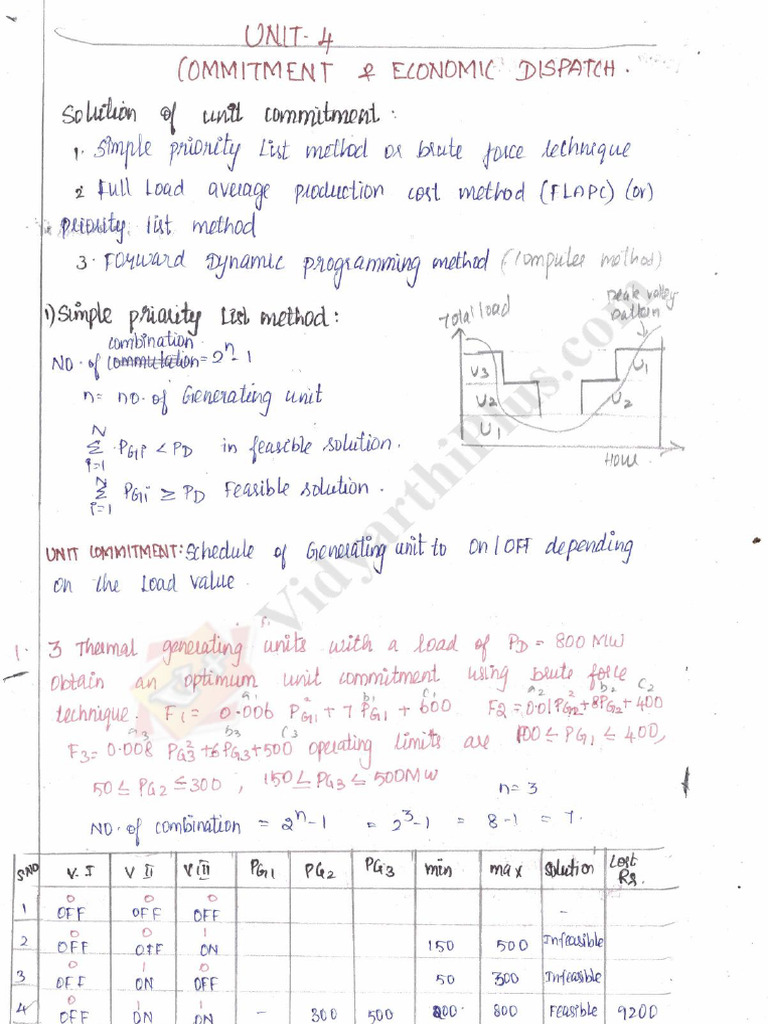 UNIT-4
COMMITMENT & ECONOMIC DISPATCH.
Solution of unit commitment:
1. Simple priority List method or brute force technique
2 Full Load average production cost method (FLAPC) (or)
priority list method
3. Forward Dynamic programming method (Computer method)
1) Simple priority List method:
combination
NO. of commutation = 2^n - 1
n = no. of Generating unit
N
Σ PG1i < PD in feasible solution.
i=1
N
Σ PGi ≥ PD Feasible solution.
i=1
Total load
peak valley
pattern
U3
U2
U1
U1
U2
Hour
UNIT COMMITMENT: Schedule of Generating unit to On/OFF depending
on the Load value
1. 3 Thermal generating units with a load of PD = 800 MW
Obtain an optimum unit commitment using brute force
a1 b1 c1 a2 b2 c2
technique. F1 = 0.006 PG1² + 7 PG1 + 600 F2 = 0.01PG2² + 8PG2 + 400
a3 b3 c3
F3 = 0.008 PG3² + 6 PG3 + 500 operating limits are 100 ≤ PG1 ≤ 400,
50 ≤ PG2 ≤ 300, 150 ≤ PG3 ≤ 500MW
n = 3
NO. of combination = 2^n - 1 = 2^3 - 1 = 8 - 1 = 7.
S.NO V.I V II V III PG1 PG2 PG3 min max Solution Cost Rs.
0 0 0
1 OFF OFF OFF -
0 0 1
2 OFF OFF ON 150 500 Infeasible
0 1 0
3 OFF ON OFF 50 300 Infeasible
0 1 1
4 OFF ON ON - 300 500 200 800 Feasible 9200
VidyarthiPlus.com
V+